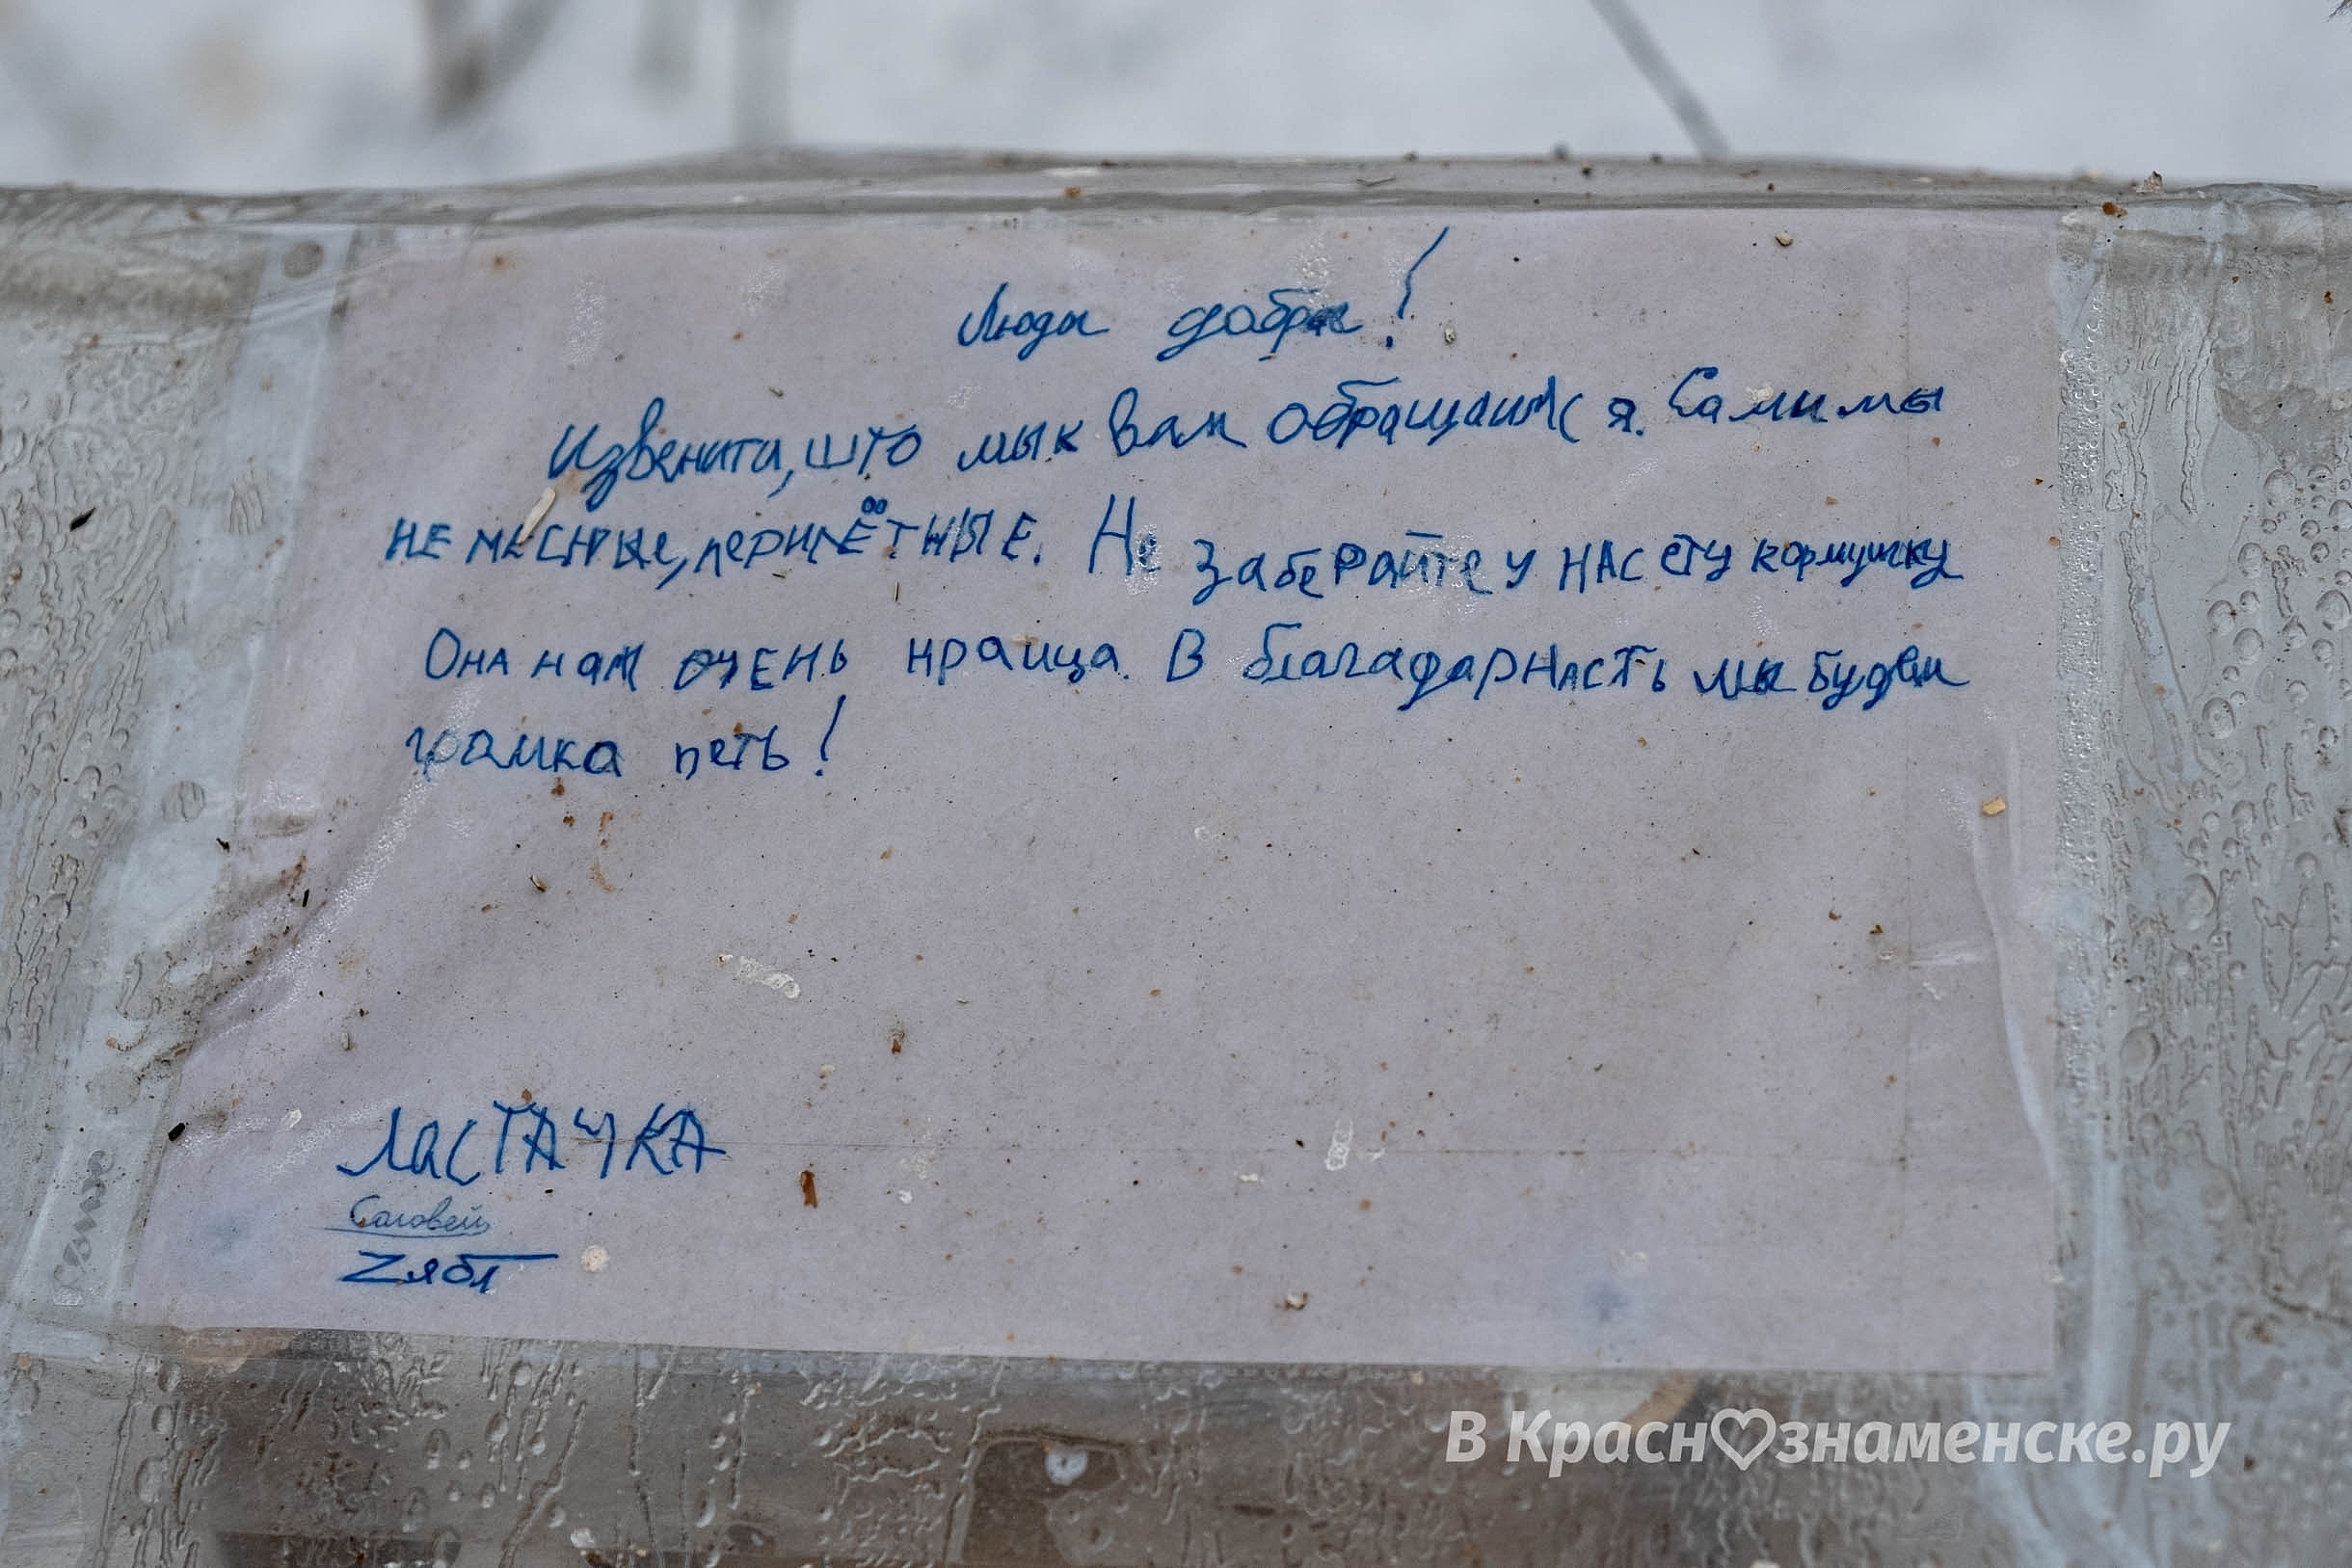 Люди добрые!
Извенита, што мы к вам обращаимся. Сами мы
не месные, перилётные. Не заберайте у нас ету кормушку
Она нам очень нраица. В благадарнасть мы будем
грамка петь!
ЛАСТАЧКА
Саловей
Zябл
В Красн♡ознаменске.ру